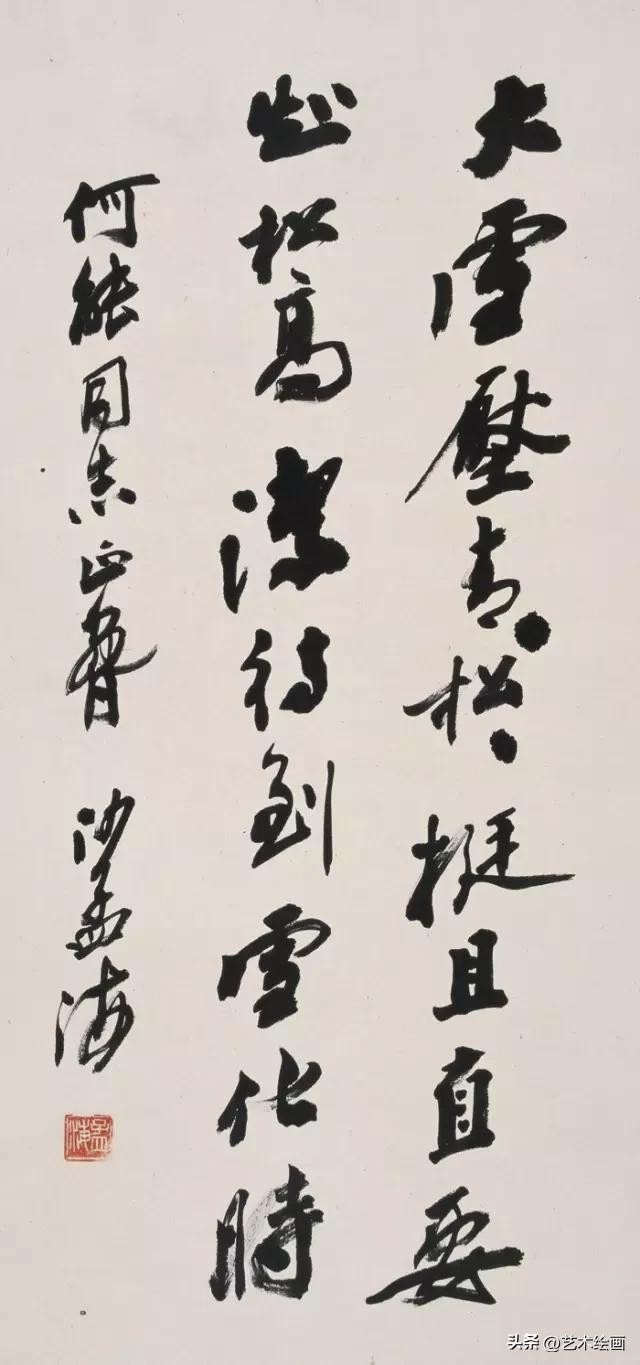 大雪壓青、松、挺且直要
知松高潔待到雪化時
何能同志正 沙孟海
孟海
头条 @艺术绘画